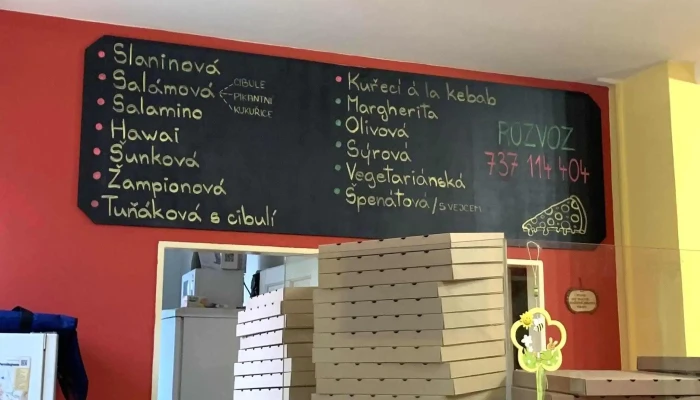 Slaninová
Salámová
CIBULE
PIKANTNÍ
KUKUŘICE
Salamino
Hawai
Šunková
Žampionová
Tuňáková s cibulí
Kuřecí á la kebab
Margherita
Olivová
Sýrová
Vegetariánská
Špenátová/S VEJCEM
ROZVOZ
737 114 404